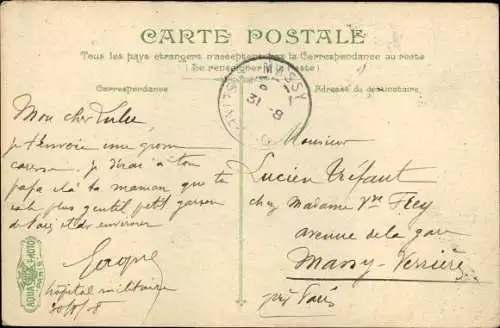 CARTE POSTALE
Tous les pays étrangers n'acceptent pas la Correspondance au recto
(Se renseigner à la Poste)
Correspondance
Adresse du destinataire
MASSY
31 -8
Mon cher Lulu
je t'envoie une grosse
caresse. je dirai à ton
papa et à ta maman que tu
es le plus gentil petit garçon
de Paris et des environs
hôpital militaire
30/8/8
Monsieur
Lucien Tréfaut
chez Madame Vve Fley
avenue de la gare
Massy-Verrières
près Paris
AQUA PHOTO
PARIS